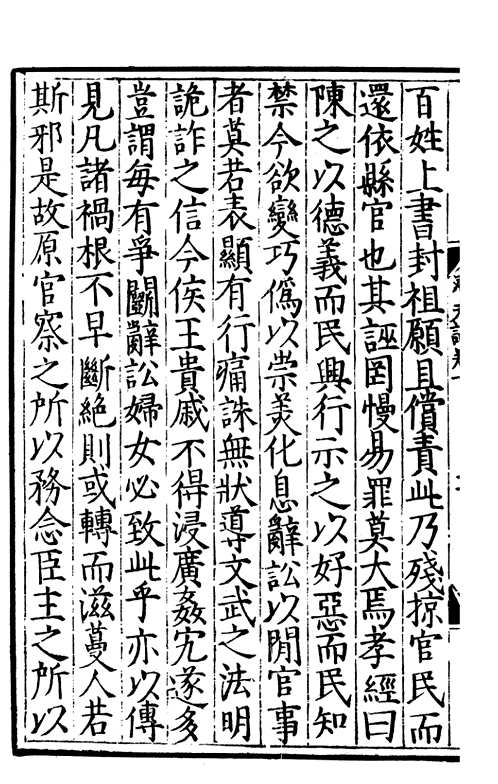 百姓上書封祖願且償責此乃殘掠官民而
還依縣官也其誣罔慢易罪莫大焉孝經曰
陳之以德義而民興行示之以好惡而民知
禁今欲變巧僞以崇美化息辭訟以閒官事
者莫若表顯有行痛誅無狀導文武之法明
詭詐之信今侯王貴戚不得浸廣姦宄遂多
豈謂每有爭鬭辭訟婦女必致此乎亦以傳
見凡諸禍根不早斷絕則或轉而滋蔓人若
斯邪是故原官察之所以務念臣主之所以